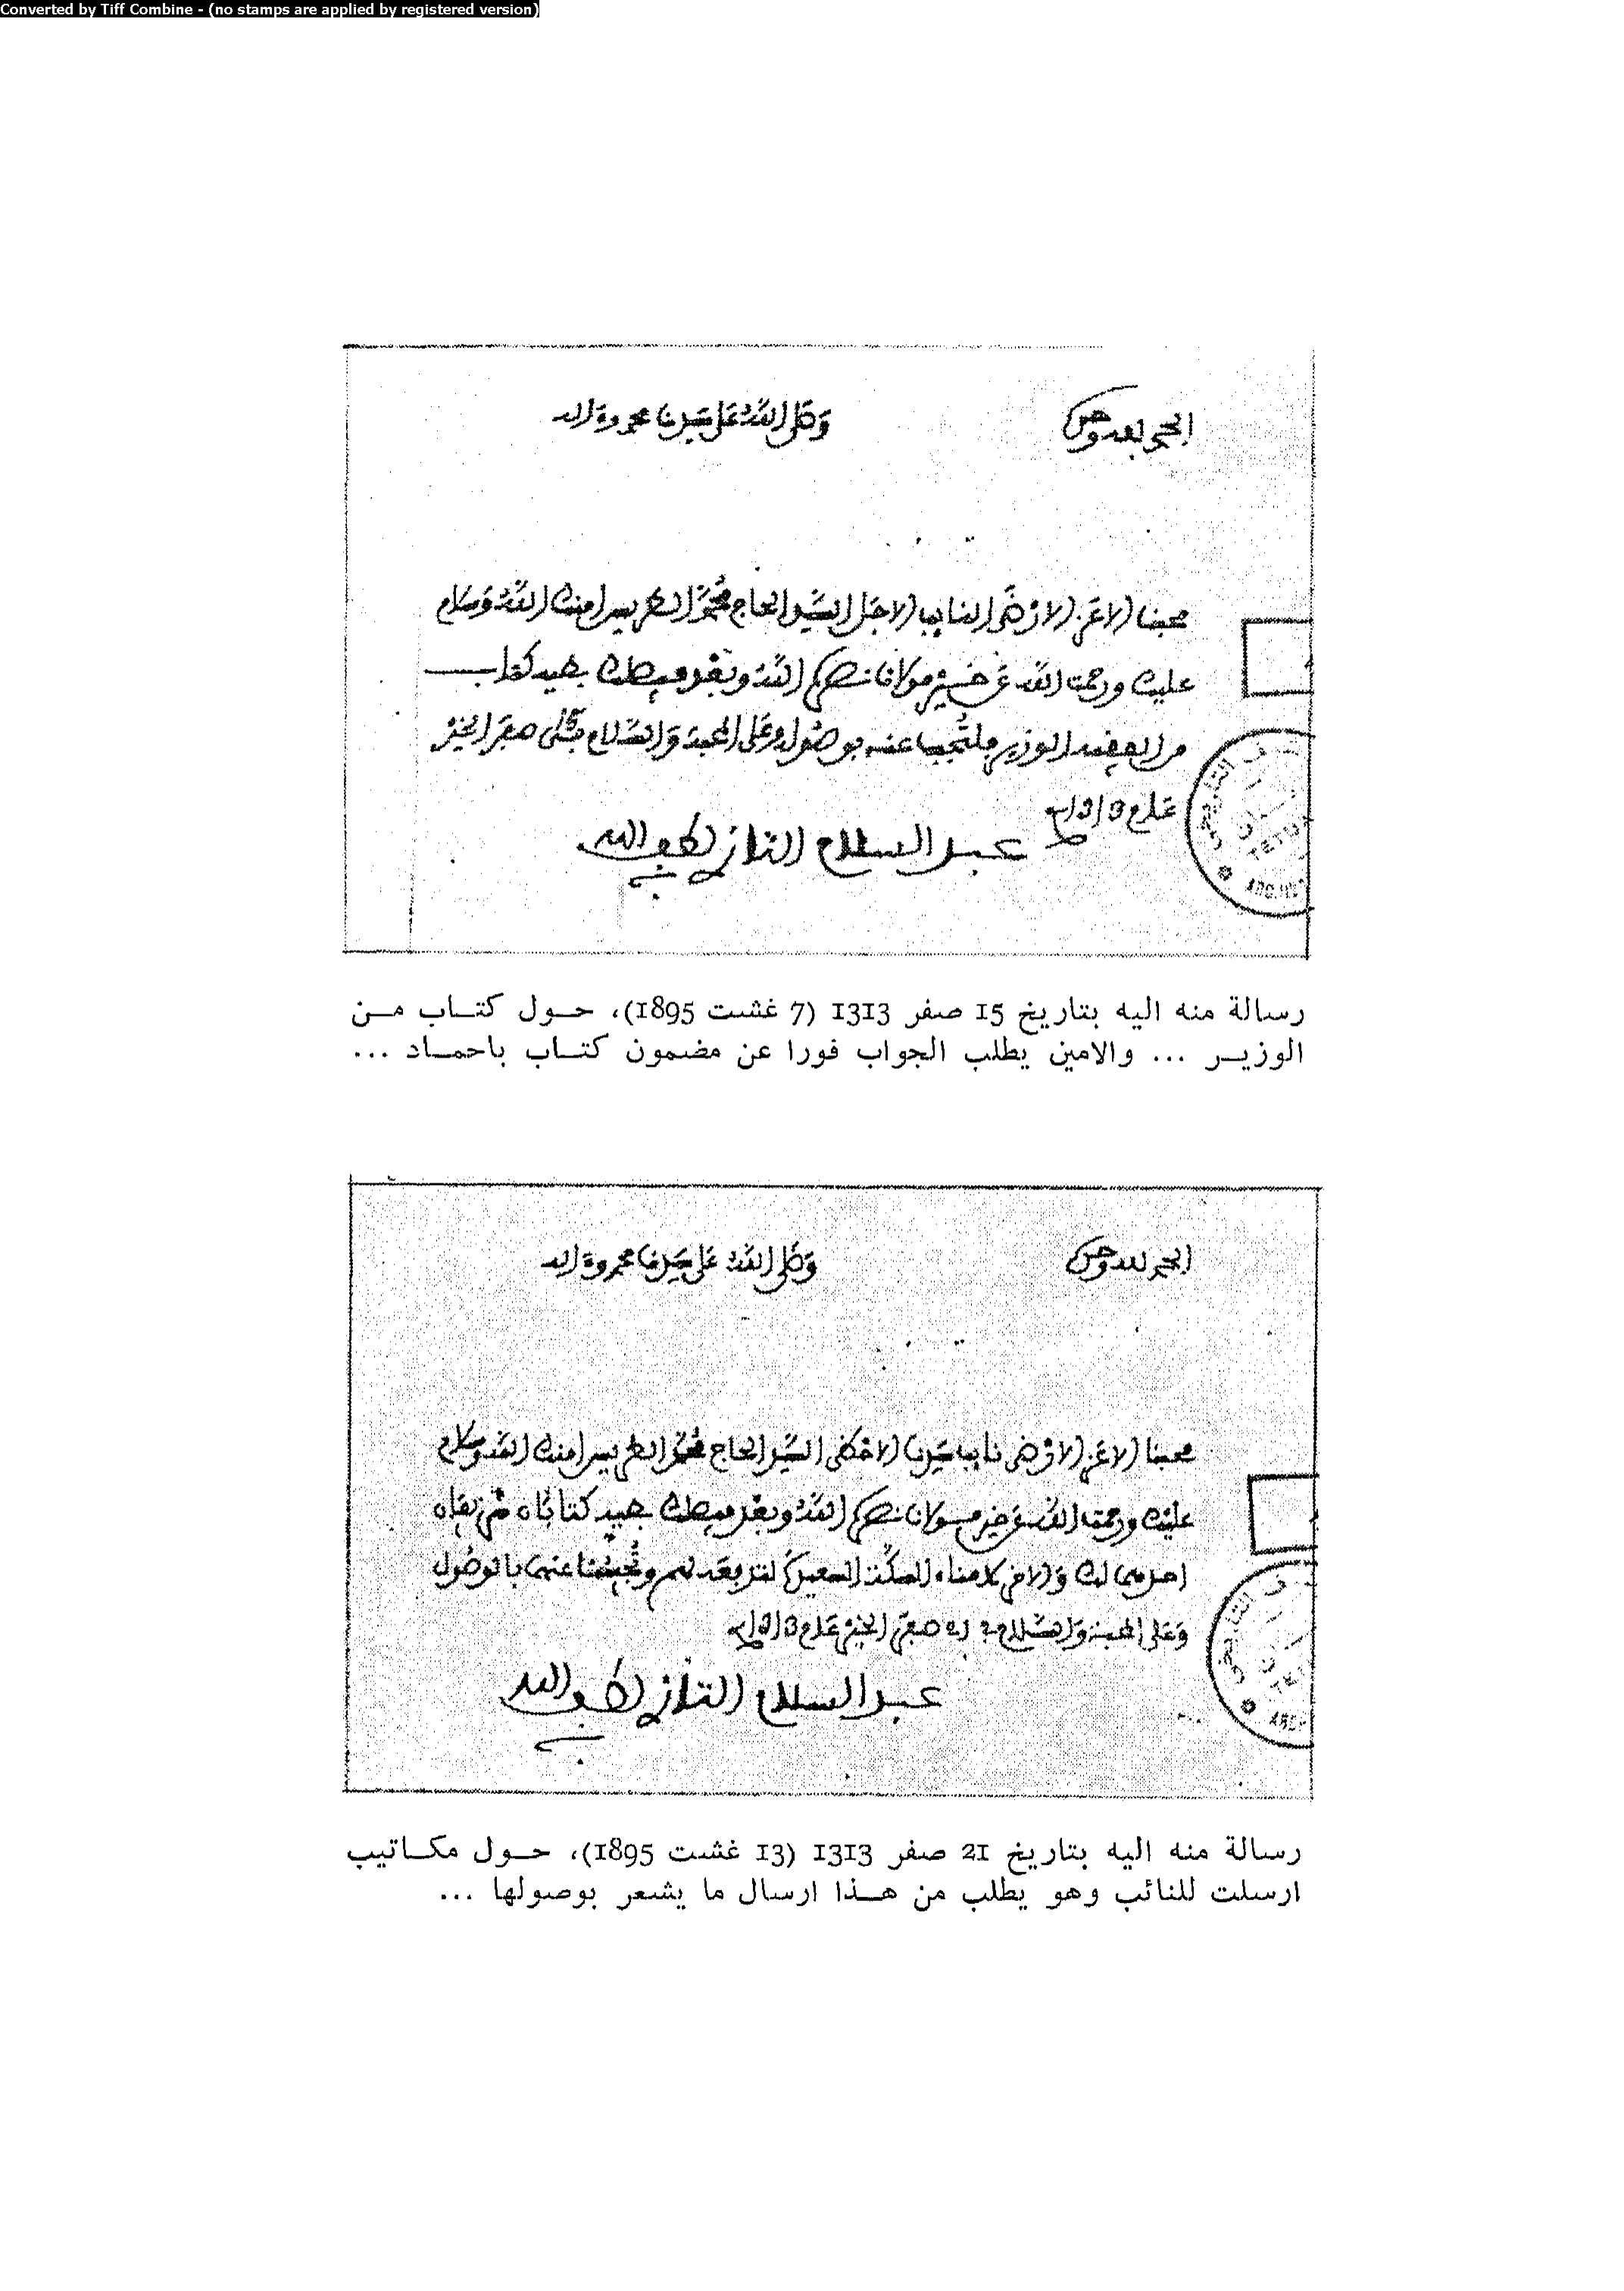 Converted by Tiff Combine - (no stamps are applied by registered version)
الحمد لله وحده
وصلى الله على سيدنا محمد وءاله
محبنا الاعز الارضى النايب الاجل السيد الحاج محمد الطريس امنك الله وسلام
عليك ورحمت الله عن خير مولانا نصره الله وبعد فيصلك طيه كتاب
من الفقيه الوزير فلتجب عنه بوصوله وعلى المحبة والسلام في صفر الخير
عام 1313
عبد السلام التازي لطف الله به
رسالة منه اليه بتاريخ 15 صفر 1313 (7 غشت 1895)، حول كتاب من
الوزير ... والامين يطلب الجواب فورا عن مضمون كتاب باحماد ...
الحمد لله وحده
وصلى الله على سيدنا محمد وءاله
محبنا الاعز الارضى نايب سيدنا الاحظى السيد الحاج محمد الطريس امنك الله وسلام
عليك ورحمت الله عن خير مولانا نصره الله وبعد فيصلك طيه كتابان شريفان
احدهما لك والاخر لامناء المكلفين لتدفعه لهم وتجيبنا عنهما بالوصول
وعلى المحبة والسلام في 21 صفر الخير عام 1313
عبد السلام التازي لطف الله به
رسالة منه اليه بتاريخ 21 صفر 1313 (13 غشت 1895)، حول مكاتيب
ارسلت للنائب وهو يطلب من هذا ارسال ما يشعر بوصولها ...